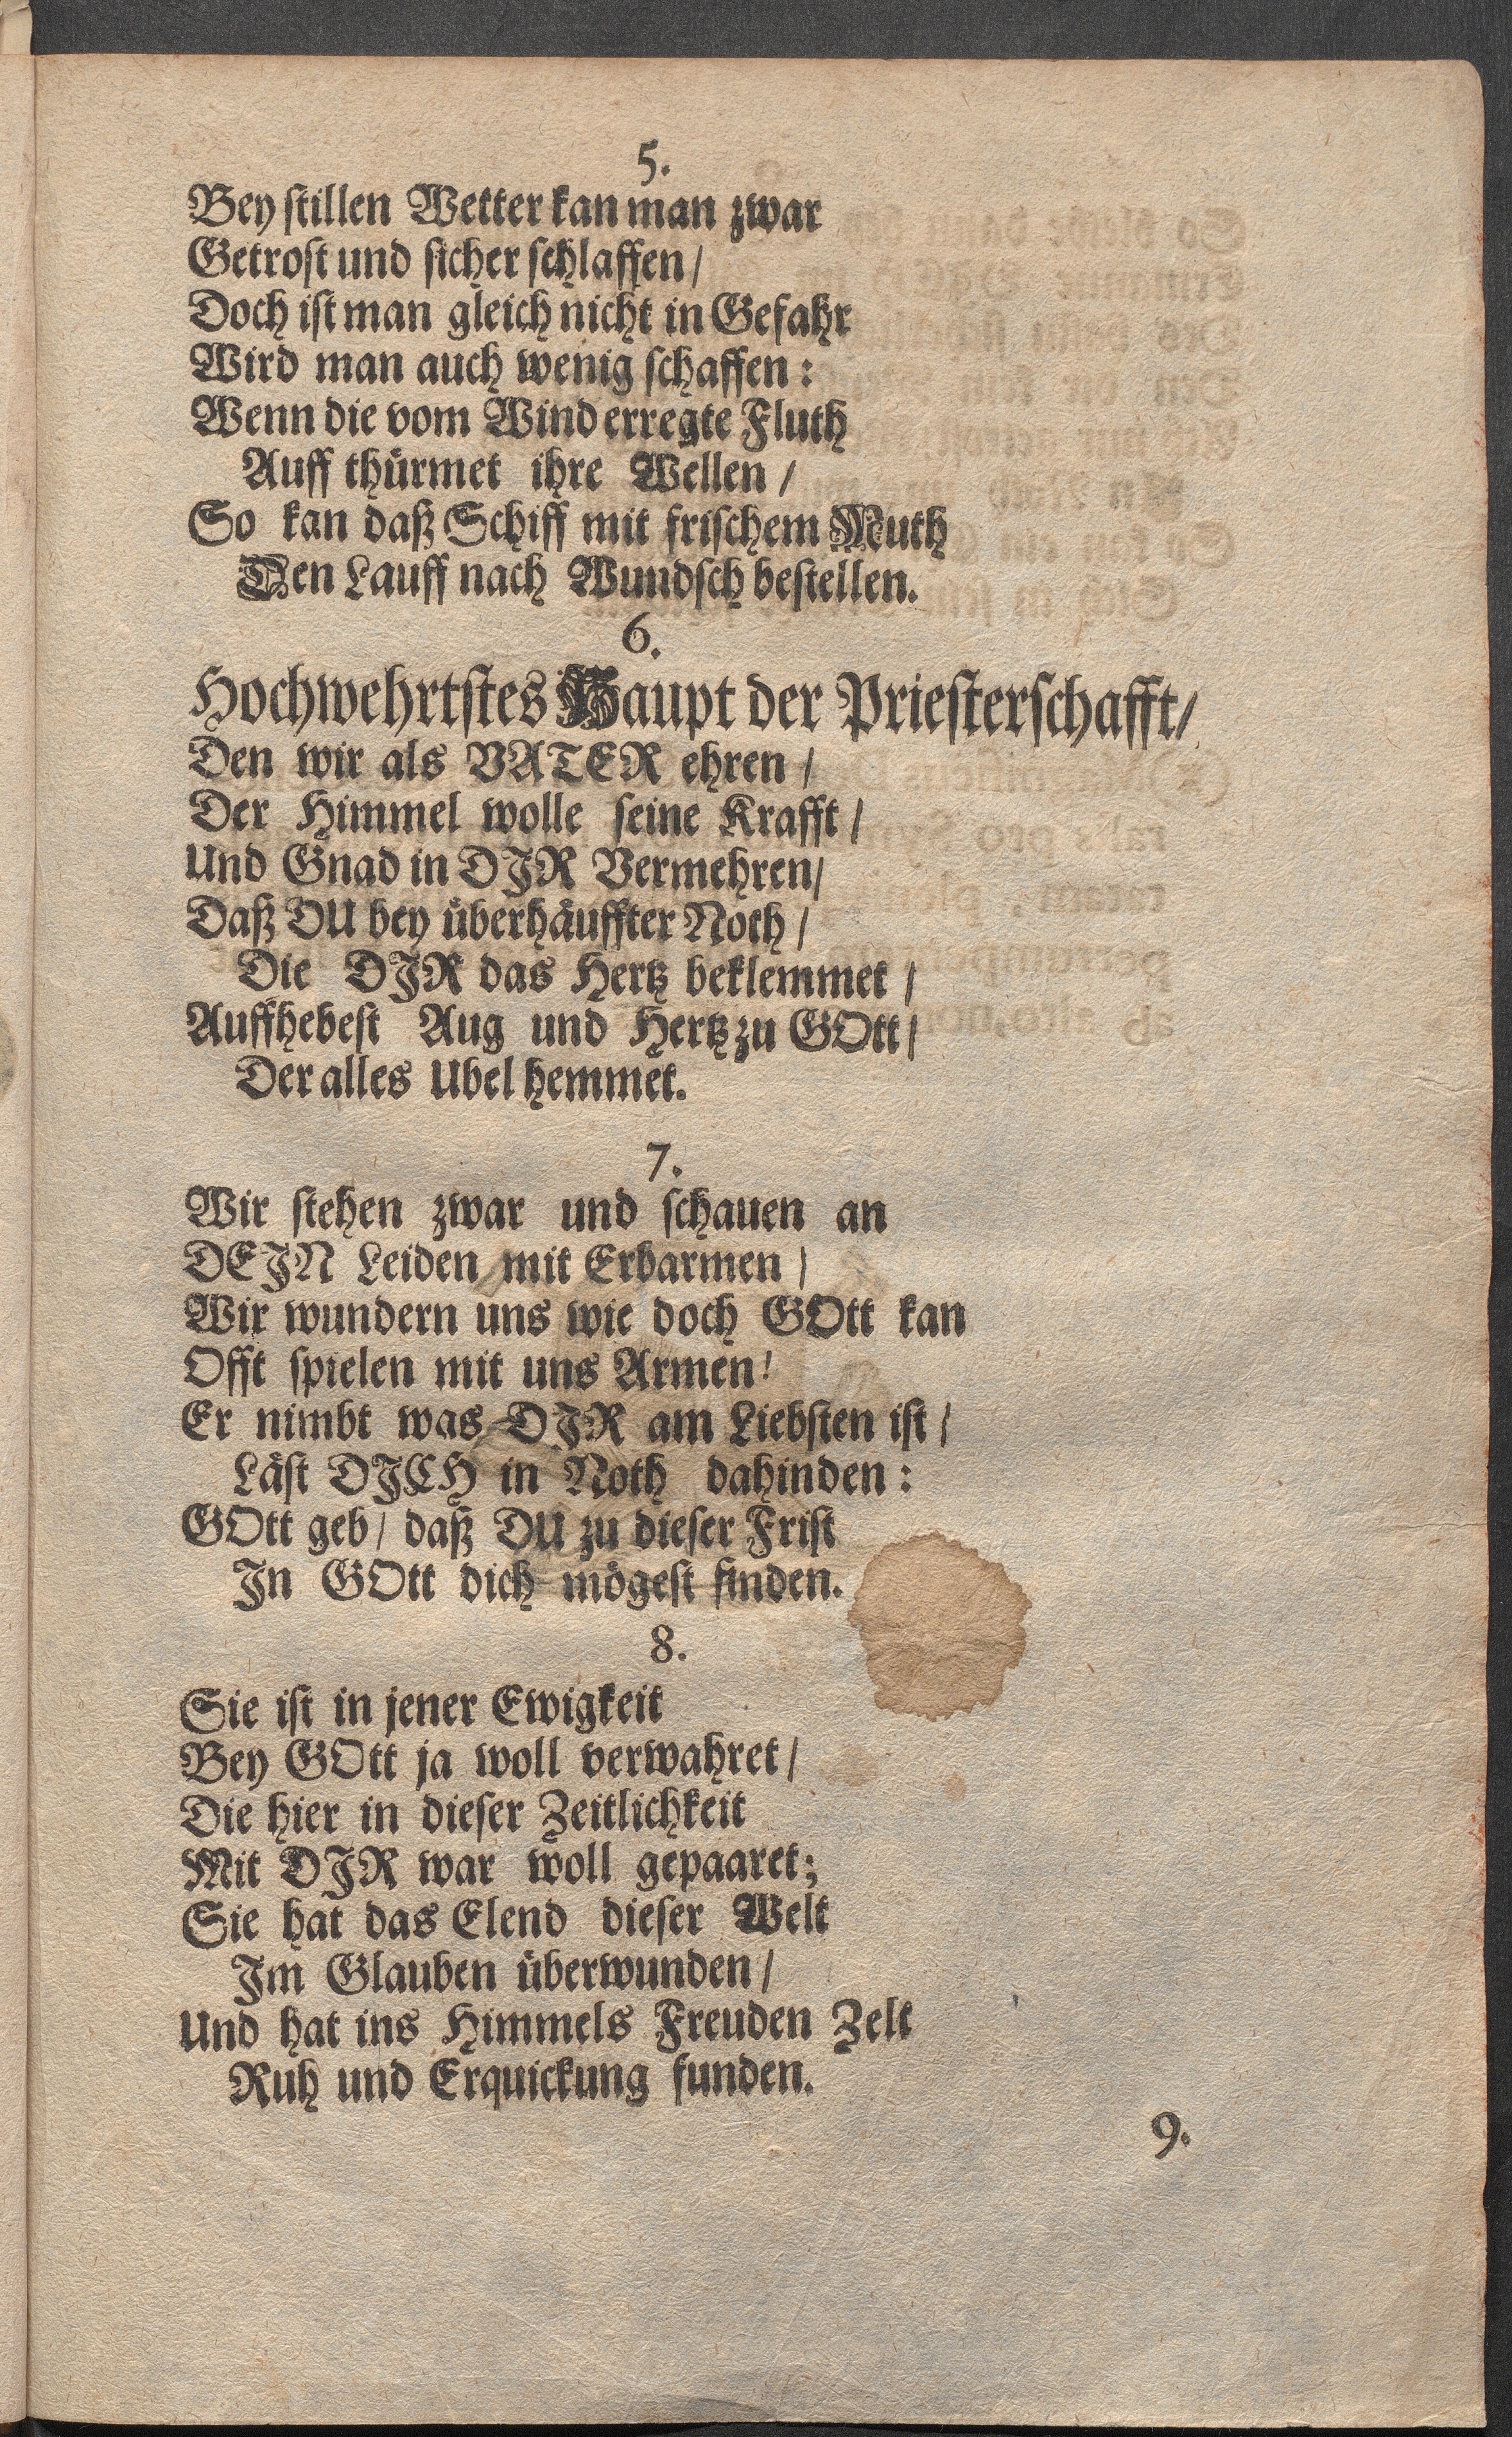 5.
Bey ſtillen Wetter kan man zwar
Getroſt und ſicher ſchlaffen/
Doch iſt man gleich nicht in Gefahr
Wird man auch wenig ſchaffen:
Wenn die vom Wind erregte Fluth
Auff thürmet ihre Wellen/
So kan daß Schiff mit friſchem Muth
Den Lauff nach Wundſch beſtellen.
6.
Hochwehrtſtes Haupt der Prieſterſchafft/
Den wir als VATER ehren/
Der Himmel wolle ſeine Krafft/
Und Gnad in DJR Vermehren/
Daß DU bey überhäuffter Noth/
Die DJR das Hertz beklemmet/
Auffhebeſt Aug und Hertz zu GOtt/
Der alles Ubel hemmet.
7.
Wir ſtehen zwar und ſchauen an
DEJN Leiden mit Erbarmen/
Wir wundern uns wie doch GOtt kan
Offt ſpielen mit uns Armen!
Er nimbt was DJR am Liebſten iſt/
Läſt DJCH in Noth dahinden:
GOtt geb/ daß DU zu dieſer Friſt
In GOtt dich mögeſt finden.
8.
Sie iſt in jener Ewigkeit
Bey GOtt ja woll verwahret/
Die hier in dieſer Zeitlichkeit
Mit DJR war woll gepaaret;
Sie hat das Elend dieſer Welt
Im Glauben überwunden/
Und hat ins Himmels Freuden Zelt
Ruh und Erquickung funden.
9.